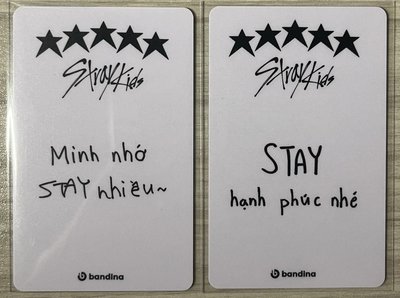 Stray Kids
Minh nhớ
STAY nhiều~
bandina
Stray Kids
STAY
hạnh phúc nhé
bandina